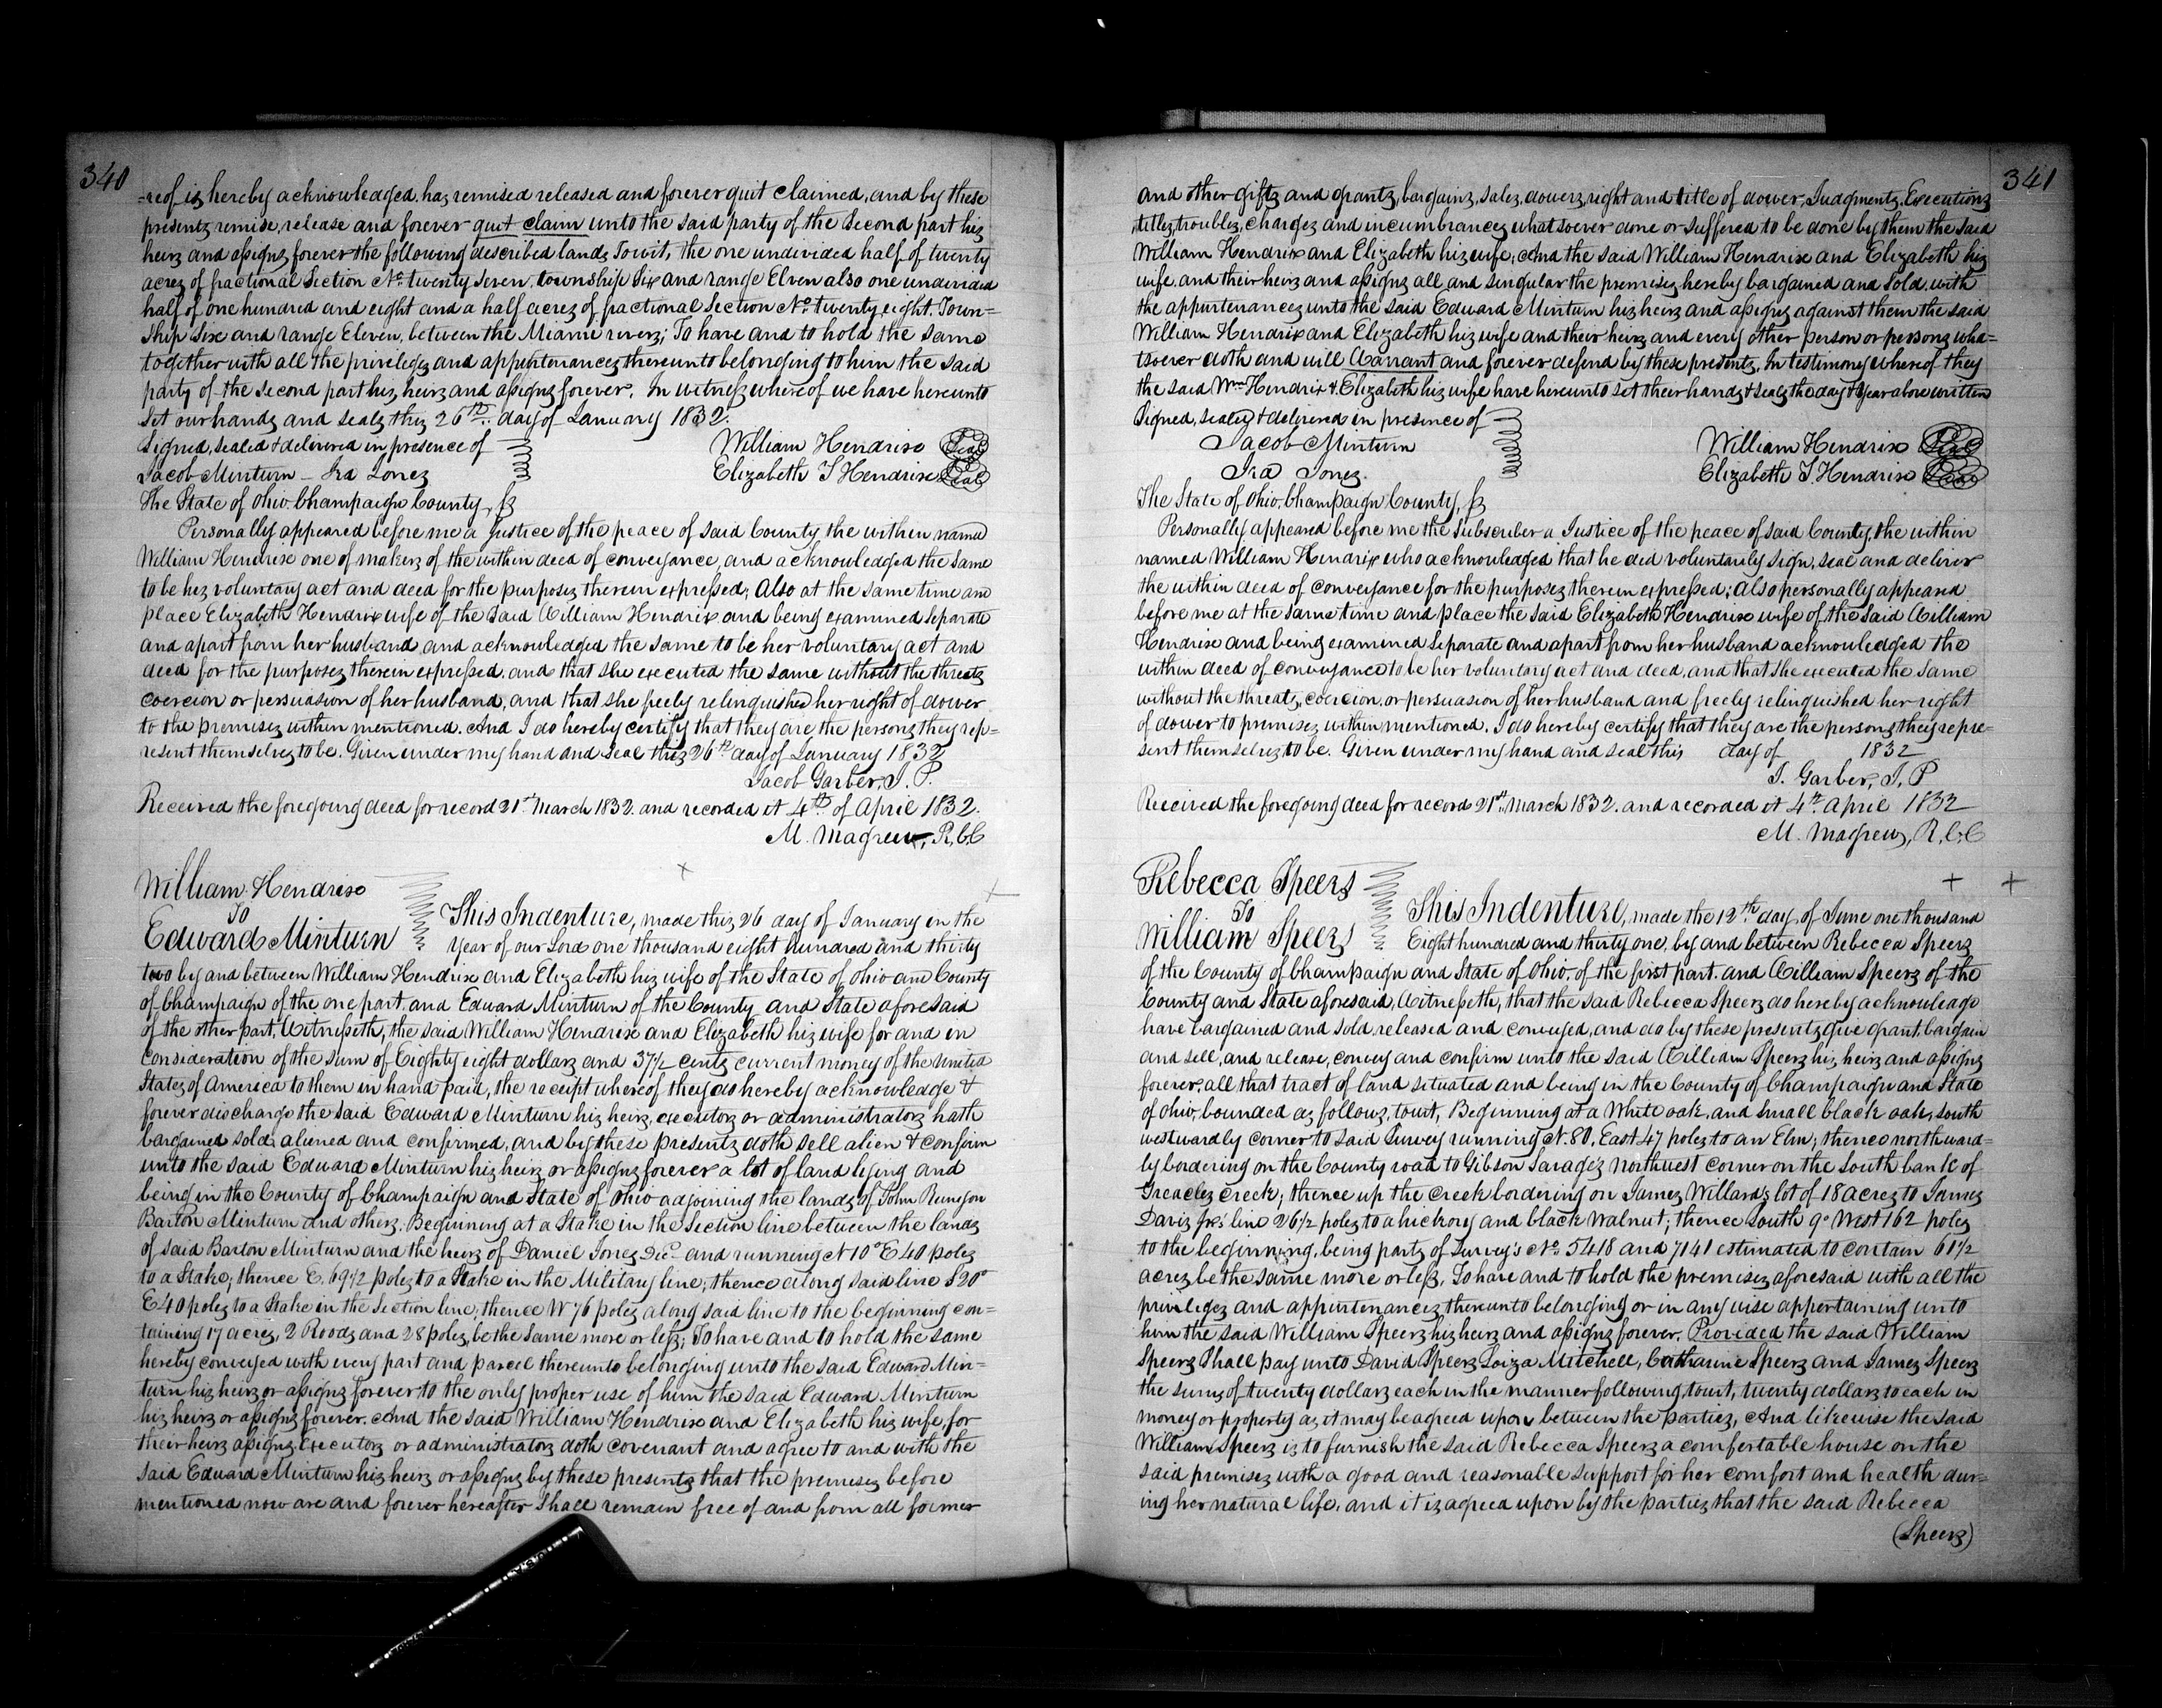 340
=reof is hereby acknowledged. has remised released and forever quit claimed, and by these
presents remise, release and forever quit claim unto the said party of the second part his
heirs and assigns forever the following described lands, Towit, the one undivided half of twenty
acres of fractional Section No. twenty seven, township Six and range Elven also one undivided
half of one hundred and eight and a half acres of fractional Section No. twenty eight. Town=
ship Six and range Eleven, between the Miami rivers; To have and to hold the same
together with all the privileges and appurtenances thereunto belonging to him the said
party of the second part his, heirs and assigns forever. In witness whereof we have hereunto
set our hands and seals this 26th day of January 1832.
Signed, sealed & delivered in presence of
Jacob Minturn - Ira Jones
William Hendrix Seal
Elizabeth T Hendrix Seal
The State of Ohio. Champaign County, ss
Personally appeared before me a Justice of the peace of said County the within named
William Hendrix one of makers of the within deed of conveyance, and acknowledged the same
to be his voluntary act and deed for the purposes therein expressed; Also at the same time and
place Elizabeth Hendrix wife of the said William Hendrix and being examined separate
and apart from her husband, and acknowledged the same to be her voluntary act and
deed for the purposes therein expressed. and that she executed the same without the threats
coercion or persuasion of her husband, and that she freely relinquished her right of dower
to the premises within mentioned. And I do hereby certify that they are the persons they rep=
resent themselves to be. Given under my hand and seal this 26th day of January 1832
Jacob Garber, J. P.
Received the foregoing deed for record 21st March 1832. and recorded it 4th of April 1832.
M. Magrew, R.C.C
William Hendrix
To
Edward Minturn
This Indenture, made this 26 day of January in the
year of our Lord one thousand eight hundred and thirty
two by and between William Hendrix and Elizabeth his wife of the State of Ohio and County
of Champaign of the one part. and Edward Minturn of the County and State aforesaid
of the other part, Witnesseth, the said William Hendrix and Elizabeth his wife for and in
consideration of the sum of Eighty eight dollars and 37 1/2 cents current money of the United
States of America to them in hand paid, the receipt whereof they do hereby acknowledge &
forever discharge the said Edward Minturn his heirs, executors or administrators hath
bargained sold, aliened and confirmed, and by these presents doth sell alien & confirm
unto the said Edward Minturn his heirs or assigns forever a lot of land lying and
being in the County of Champaign and State of Ohio adjoining the lands of John Runyon
Barton Minturn and others. Beginning at a Stake in the Section line between the lands
of said Barton Minturn and the heirs of Daniel Jones Dec'd and running N 10° E 40 poles
to a Stake; thence E. 69 1/2 poles to a Stake in the Military line, thence along said line S 20°
E 40 poles to a Stake in the Section line, thence W 76 poles along said line to the beginning con=
taining 17 acres, 2 Roods and 28 poles, be the same more or less; To have and to hold the same
hereby conveyed with every part and parcel thereunto belonging unto the said Edward Min=
turn his heirs or assigns forever, to the only proper use of him the said Edward Minturn
his heirs or assigns forever. And the said William Hendrix and Elizabeth his wife, for
their heirs assigns, Executors or administrators doth covenant and agree to and with the
said Edward Minturn his heirs or assigns by these presents that the premises before
mentioned now are and forever hereafter shall remain free of and from all former
341
and other gifts and grants, bargains, sales, dowers, right and title of dower, Judgments, Executions
titles, troubles, charges and incumbrances whatsoever done or suffered to be done by them the said
William Hendrix and Elizabeth his wife, And the said William Hendrix and Elizabeth his
wife, and their heirs and assigns all and singular the premises hereby bargained and sold, with
the appurtenances unto the said Edward Minturn his heirs and assigns against them the said
William Hendrix and Elizabeth his wife and their heirs and every other person or persons wha=
tsoever doth and will Warrant and forever defend by these presents, In testimony whereof they
the said Wm Hendrix & Elizabeth his wife have hereunto set their hands & seals the day & year above written
Signed, sealed & delivered in presence of
Jacob Minturn
Ira Jones
William Hendrix Seal
Elizabeth T. Hendrix Seal
The State of Ohio, Champaign County, ss
Personally appeared before me the subscriber a Justice of the peace of said County, the within
named William Hendrix who acknowledged that he did voluntarily sign, seal and deliver
the within deed of conveyance for the purposes therein expressed; also personally appeared
before me at the same time and place the said Elizabeth Hendrix wife of the said William
Hendrix and being examined separate and apart from her husband acknowledged the
within deed of conveyance to be her voluntary act and deed, and that she executed the same
without the threats, coercion, or persuasion of her husband and freely relinquished her right
of dower to premises within mentioned. I do hereby certify that they are the persons they repre=
sent themselves to be. Given under my hand and seal this day of 1832
J. Garber, J. P
Received the foregoing deed for record 21st March 1832. and recorded it 4th April 1832
M. Magrew, R.C.C
Rebecca Speers
To
William Speers
This Indenture, made the 12th day of June one thousand
Eight hundred and thirty one, by and between Rebecca Speers
of the County of Champaign and State of Ohio, of the first part. and William Speers of the
County and State aforesaid, Witnesseth, that the said Rebecca Speers do hereby acknowledge
have bargained and sold, released and conveyed, and do by these presents, give grant, bargain
and sell, and release, convey and confirm unto the said William Speers his, heirs and assigns
forever, all that tract of land situated and being in the County of Champaign and State
of Ohio, bounded as follows, towit, Beginning at a White oak, and small black oak, south
westwardly corner to said Survey running N. 80, East 47 poles to an Elm; thence northward=
ly bordering on the County road to Gibson Savage's northwest corner on the south bank of
Treacles creek; thence up the creek bordering on James Willard's lot of 18 acres to James
Davis jr's line 26 1/2 poles to a hickory and black Walnut; thence South 9° West 162 poles
to the beginning, being parts of Survey's No. 5418 and 7141 estimated to contain 61 1/2
acres be the same more or less, To have and to hold the premises aforesaid with all the
privileges and appurtenances thereunto belonging or in any wise appertaining unto
him the said William Speers his heirs and assigns forever, Provided the said William
Speers Shall pay unto David Speers Loiza Mitchell, Catharine Speers and James Speers
the sums of twenty dollars each in the manner following, towit, twenty dollars to each in
money or property as it may be agreed upon between the parties, And likewise the said
William Speers is to furnish the said Rebecca Speers a comfortable house on the
said premises with a good and reasonable support for her comfort and health dur=
ing her natural life, and it is agreed upon by the parties that the said Rebecca
(Speers)